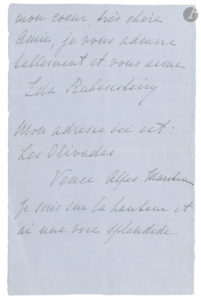 mon coeur, très chère
Amie, je vous admire
tellement et vous aime
Ida Rubinstein
Mon adresse ici est :
Les Olivades
Vence Alpes Maritimes
Je suis sur la hauteur et
ai une vue splendide